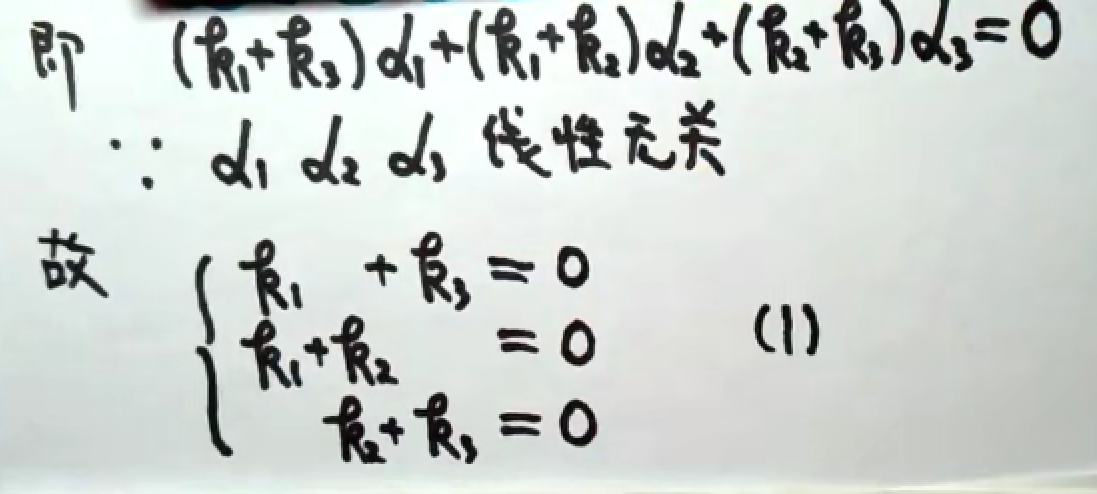 即 (k₁+k₃)α₁+(k₁+k₂)α₂+(k₂+k₃)α₃=0
∵ α₁ α₂ α₃ 线性无关
故 { k₁ + k₃ = 0
k₁+k₂ = 0 (1)
k₂+k₃ = 0